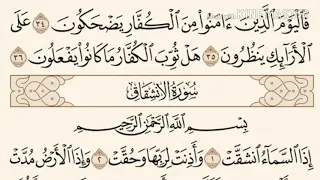 فَالْيَوْمَ الَّذِينَ ءَامَنُوا۟ مِنَ الْكُفَّارِ يَضْحَكُونَ ٣٤ عَلَى
الْأَرَآئِكِ يَنظُرُونَ ٣٥ هَلْ ثُوِّبَ الْكُفَّارُ مَا كَانُوا۟ يَفْعَلُونَ ٣٦
سُورَةُ الْانشِقَاقِ
بِسْمِ اللَّهِ الرَّحْمَٰنِ الرَّحِيمِ
إِذَا السَّمَآءُ انشَقَّتْ ١ وَأَذِنَتْ لِرَبِّهَا وَحُقَّتْ ٢ وَإِذَا الْأَرْضُ مُدَّتْ